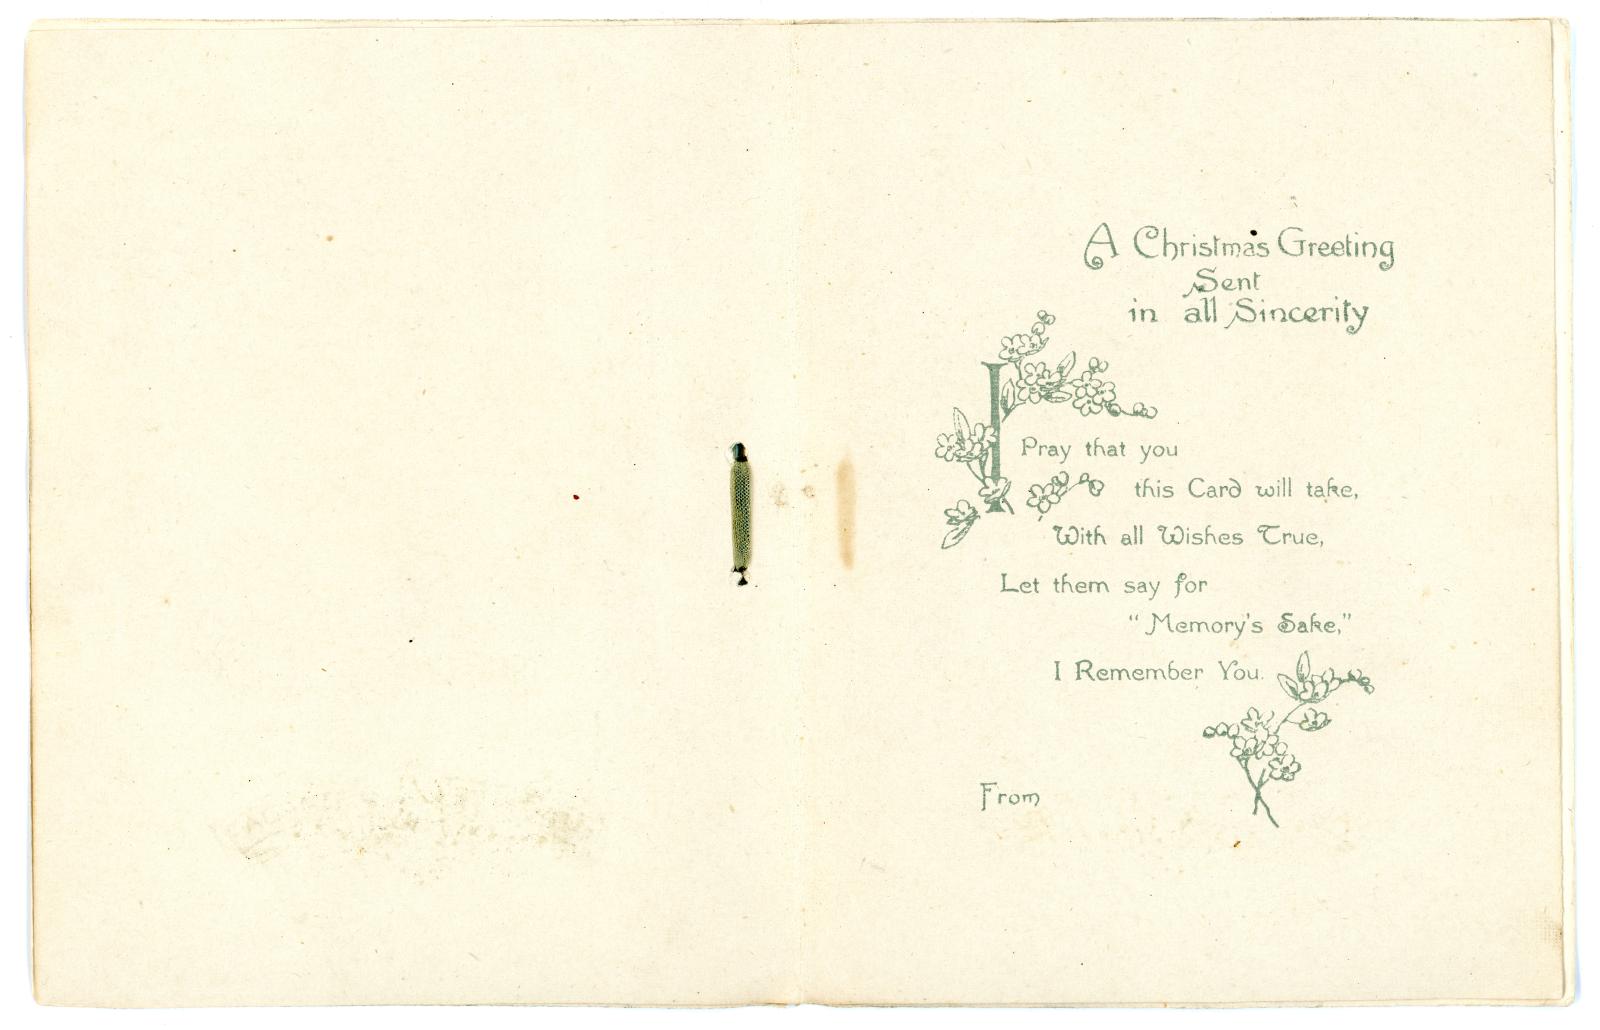 A Christmas Greeting
Sent
in all Sincerity
I Pray that you
this Card will take,
With all Wishes True,
Let them say for
"Memory's Sake,"
I Remember You.
From